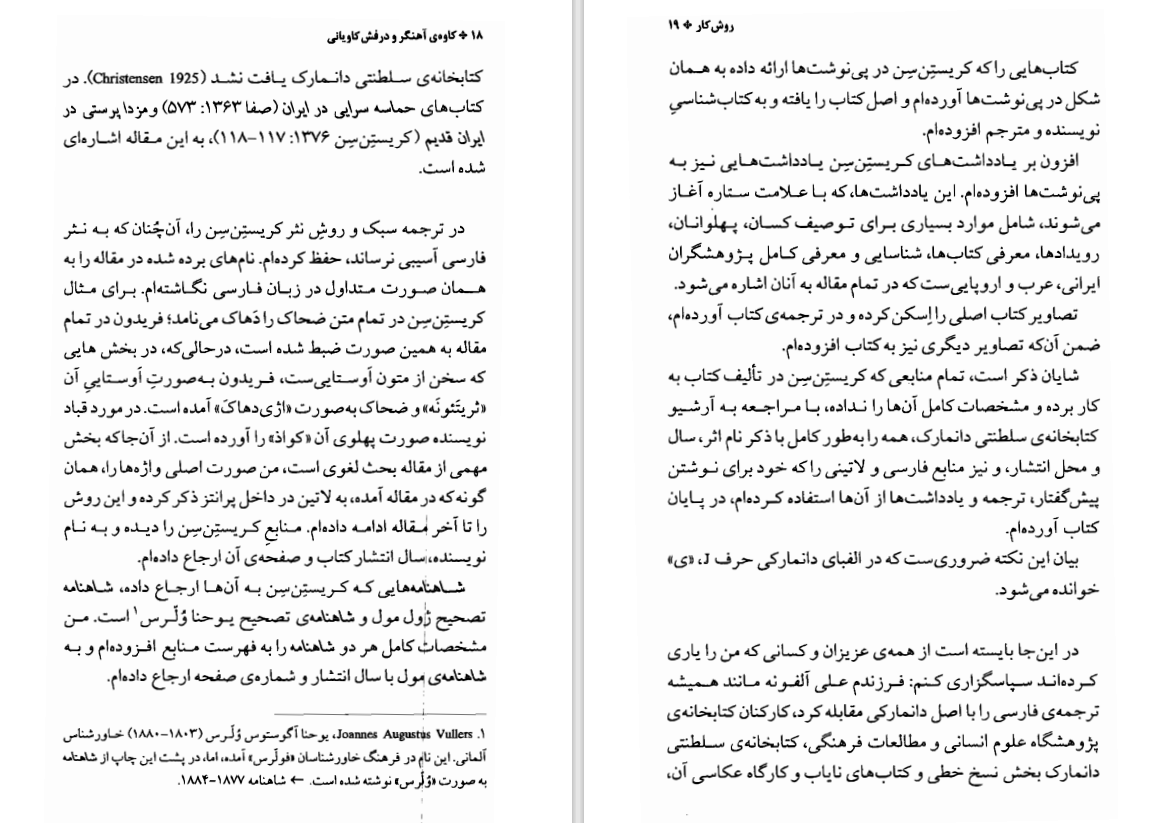 ۱۸ ❖ کاوه‌ی آهنگر و درفش کاویانی
کتابخانه‌ی سلطنتی دانمارک یافت نشد (Christensen 1925). در
کتاب‌های حماسه سرایی در ایران (صفا ۱۳۶۳: ۵۷۳) و مزدا پرستی در
ایران قدیم (کریستِن‌سِن ۱۳۷۶: ۱۱۷–۱۱۸)، به این مقاله اشاره‌ای
شده است.
در ترجمه سبک و روشِ نثر کریستِن‌سِن را، آن‌چُنان که به نثر
فارسی آسیبی نرساند، حفظ کرده‌ام. نام‌های برده شده در مقاله را به
همان صورت متداول در زبان فارسی نگاشته‌ام. برای مثال
کریستِن‌سِن در تمام متن ضحاک را دَهاک می‌نامد؛ فریدون در تمام
مقاله به همین صورت ضبط شده است، درحالی‌که، در بخش هایی
که سخن از متون اَوستایی‌ست، فریدون به‌صورتِ اَوستاییِ آن
«ثریتَئونَه» و ضحاک به‌صورت «اژی‌دهاکَ» آمده است. در مورد قباد
نویسنده صورت پهلوی آن «کواذ» را آورده است. از آن‌جاکه بخش
مهمی از مقاله بحث لغوی است، من صورت اصلی واژه‌ها را، همان
گونه‌که در مقاله آمده، به لاتین در داخل پرانتز ذکر کرده و این روش
را تا آخر مقاله ادامه داده‌ام. منابعِ کریستِن‌سِن را دیده و به نام
نویسنده، سال انتشار کتاب و صفحه‌ی آن ارجاع داده‌ام.
شاهنامه‌هایی که کریستِن‌سِن به آن‌ها ارجاع داده، شاهنامه
تصحیح ژول مول و شاهنامه‌ی تصحیح یوحنا وُلّرس۱ است. من
مشخصات کامل هر دو شاهنامه را به فهرست منابع افزوده‌ام و به
شاهنامه‌ی مول با سال انتشار و شماره‌ی صفحه ارجاع داده‌ام.
۱. Joannes Augustus Vullers، یوحنا آگوستوس وُلّرس (۱۸۰۳–۱۸۸۰) خاورشناس
آلمانی. این نام در فرهنگ خاورشناسان «فولّرس» آمده، اما، در پشت این چاپ از شاهنامه
به صورت «وُلّرس» نوشته شده است. ← شاهنامه ۱۸۷۷–۱۸۸۴.
روش کار ❖ ۱۹
کتاب‌هایی را که کریستِن‌سِن در پی‌نوشت‌ها ارائه داده به همان
شکل در پی‌نوشت‌ها آورده‌ام و اصل کتاب را یافته و به کتاب‌شناسیِ
نویسنده و مترجم افزوده‌ام.
افزون بر یادداشت‌های کریستِن‌سِن یادداشت‌هایی نیز به
پی‌نوشت‌ها افزوده‌ام. این یادداشت‌ها، که با علامت ستاره آغاز
می‌شوند، شامل موارد بسیاری برای توصیف کسان، پهلوانان،
رویدادها، معرفی کتاب‌ها، شناسایی و معرفی کامل پژوهشگران
ایرانی، عرب و اروپایی‌ست که در تمام مقاله به آنان اشاره می‌شود.
تصاویر کتاب اصلی را اِسکن کرده و در ترجمه‌ی کتاب آورده‌ام،
ضمن آن‌که تصاویر دیگری نیز به کتاب افزوده‌ام.
شایان ذکر است، تمام منابعی که کریستِن‌سِن در تألیف کتاب به
کار برده و مشخصات کامل آن‌ها را نداده، با مراجعه به آرشیو
کتابخانه‌ی سلطنتی دانمارک، همه را به‌طور کامل با ذکر نام اثر، سال
و محل انتشار، و نیز منابع فارسی و لاتینی را که خود برای نوشتن
پیش‌گفتار، ترجمه و یادداشت‌ها از آن‌ها استفاده کرده‌ام، در پایان
کتاب آورده‌ام.
بیان این نکته ضروری‌ست که در الفبای دانمارکی حرف J، «ی»
خوانده می‌شود.
در این‌جا بایسته است از همه‌ی عزیزان و کسانی که من را یاری
کرده‌اند سپاسگزاری کنم: فرزندم علی آلفونه مانند همیشه
ترجمه‌ی فارسی را با اصل دانمارکی مقابله کرد، کارکنان کتابخانه‌ی
پژوهشگاه علوم انسانی و مطالعات فرهنگی، کتابخانه‌ی سلطنتی
دانمارک بخش نسخ خطی و کتاب‌های نایاب و کارگاه عکاسی آن،